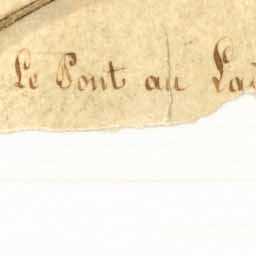 Le Pont au